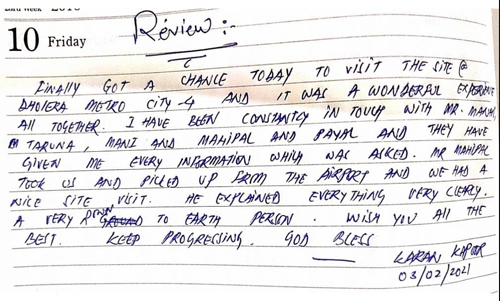 10 Friday
Review :-
FINALLY GOT A CHANCE TODAY TO VISIT THE SITE @
DHOLERA METRO CITY -4 AND IT WAS A WONDERFUL EXPERIENCE
ALL TOGETHER. I HAVE BEEN CONSTANTLY IN TOUCH WITH MR.
TARUNA, MANI AND MAHIPAL AND PAYAL AND THEY HAVE
GIVEN ME EVERY INFORMATION WHICH WAS ASKED. MR MAHIPAL
TOOK US AND PICKED UP FROM THE AIRPORT AND WE HAD A
NICE SITE VISIT. HE EXPLAINED EVERYTHING VERY CLEARLY.
A VERY DOWN TO EARTH PERSON. WISH YOU ALL THE
BEST. KEEP PROGRESSING. GOD BLESS
KARAN KAPOOR
03/02/2021